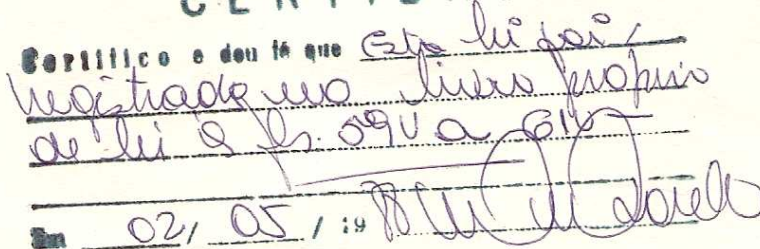 CERTID
Certifico e dou fé que Esta lei foi
registrada no livro próprio
de lei à fs. 59V a 61V
Em 02/05/19